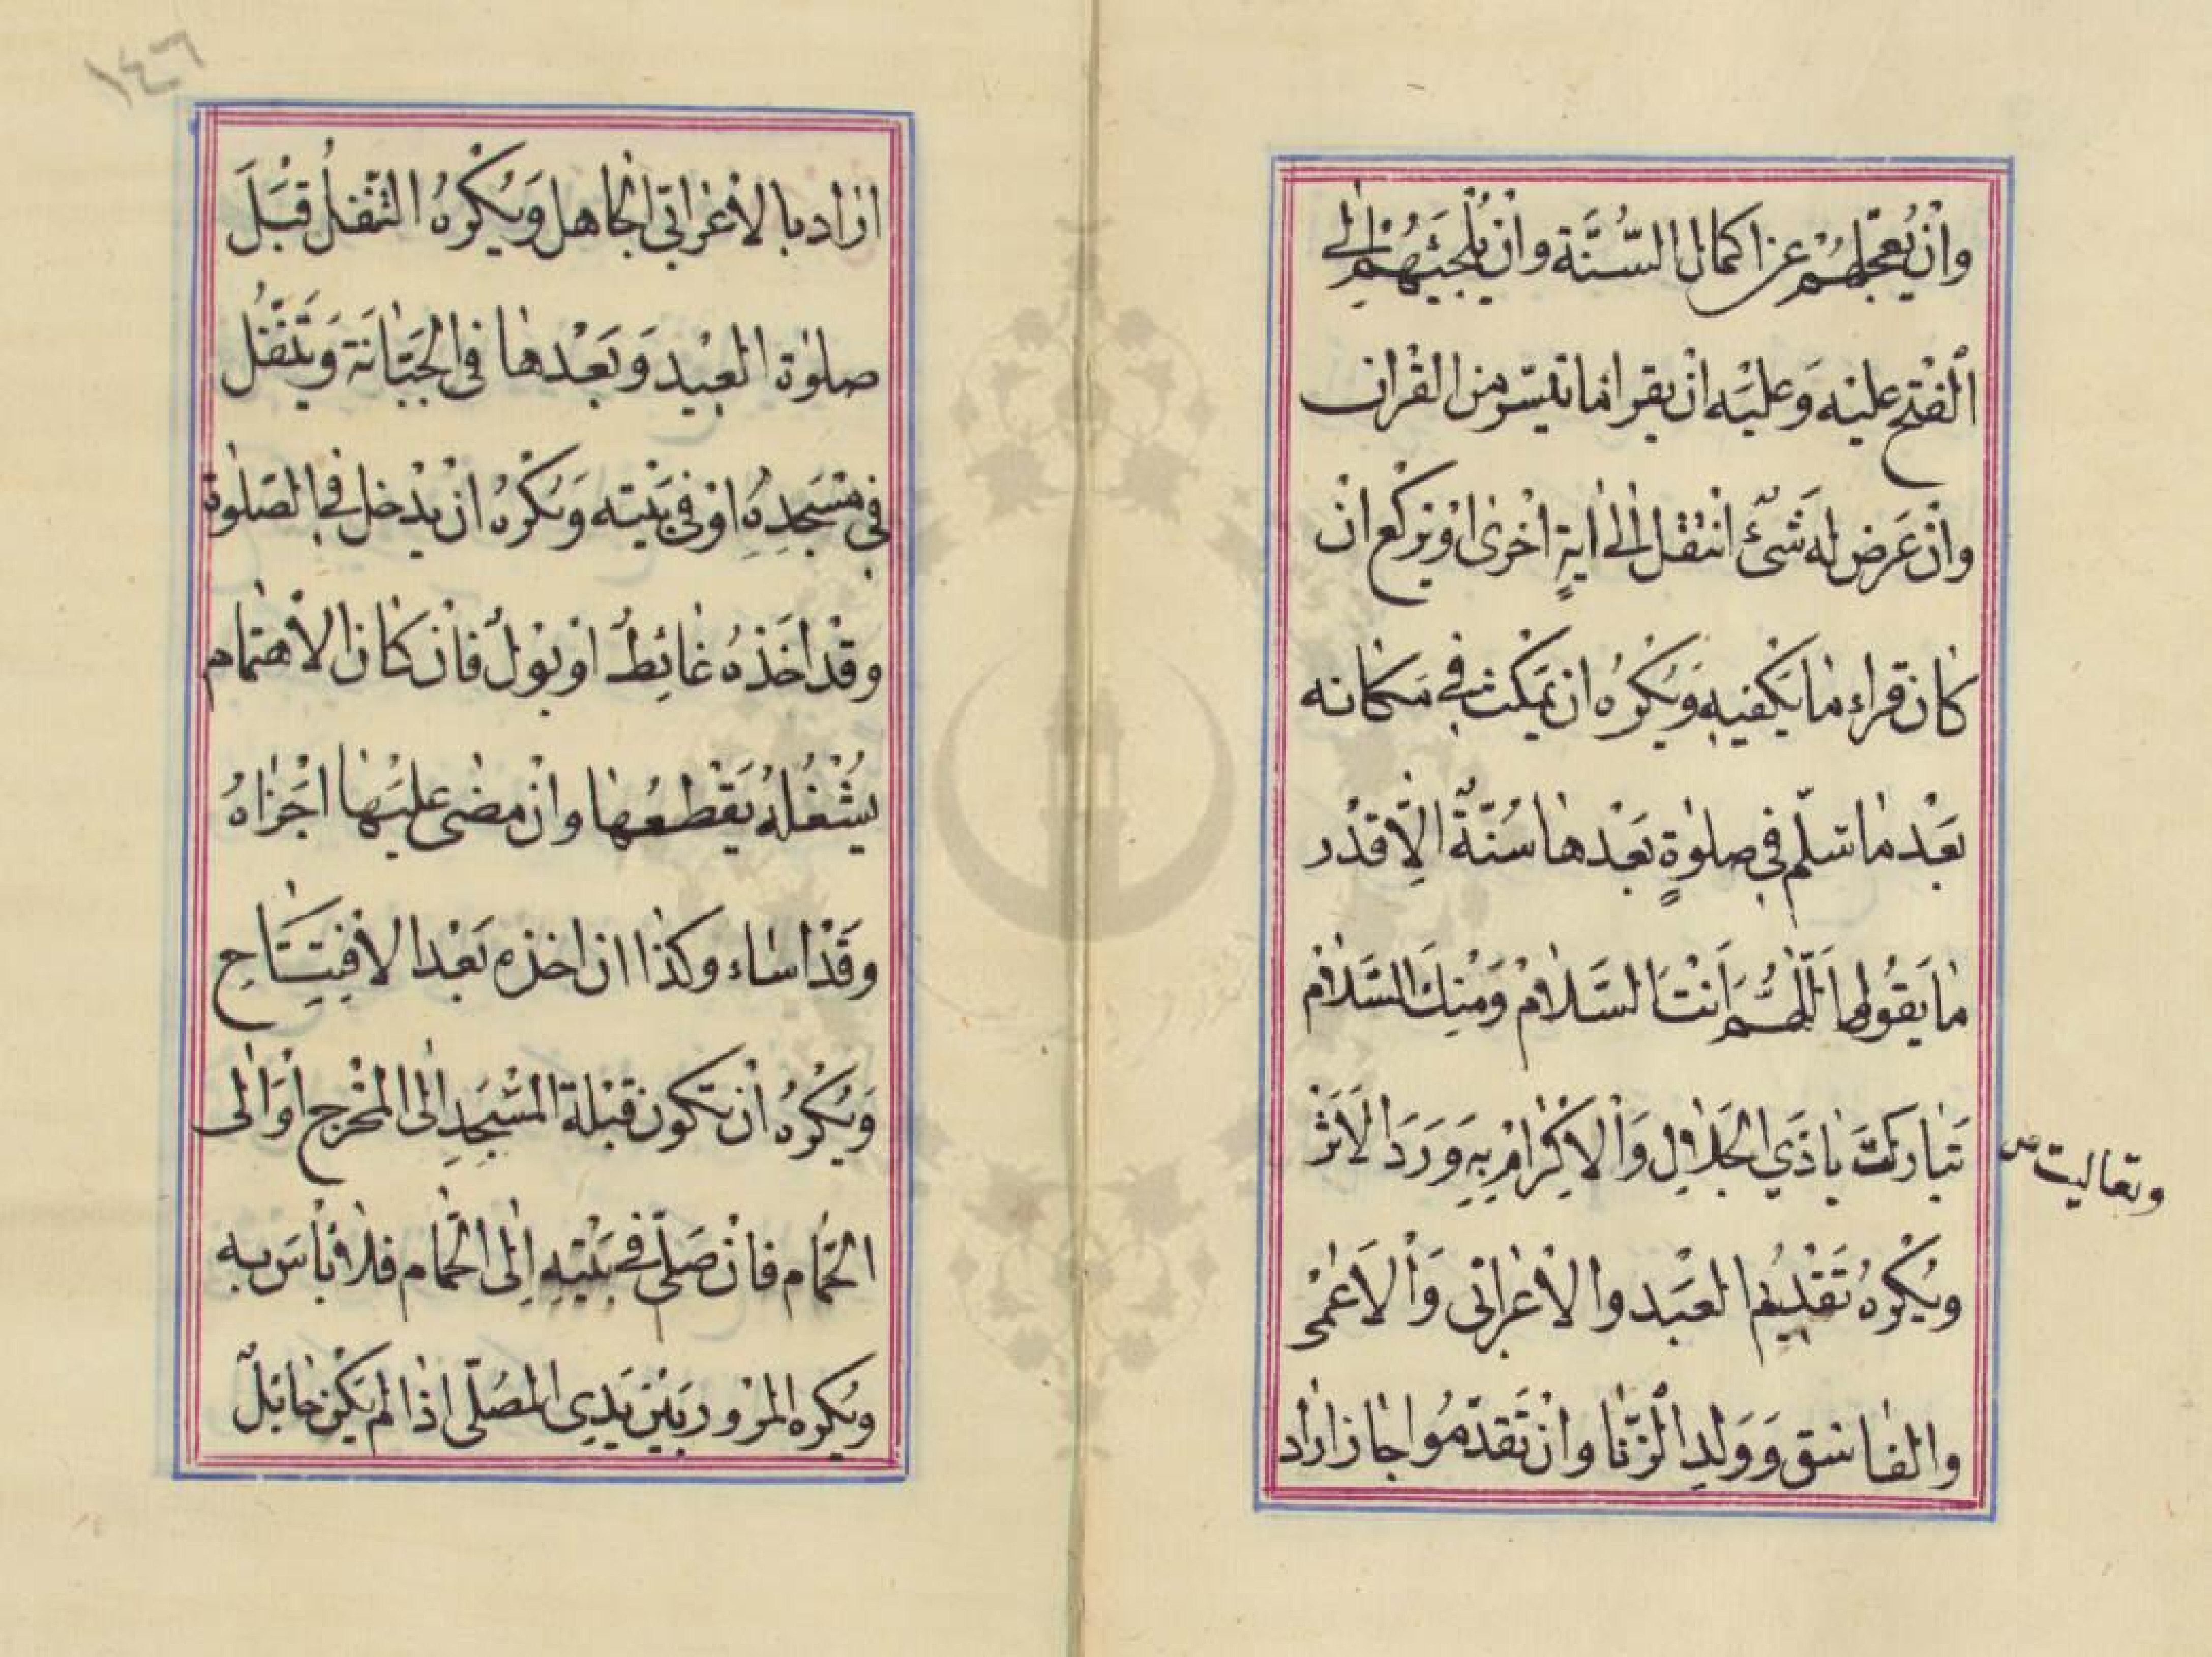 وانْ يُعجّلهُمْ عن اكمال السُّنَّة وانْ يُلْجئَهُمْ الٰى
الْفتح عليْه وَعليْه انْ يقرا ما تيسّر من القرْان
وانْ عَرض له شَئٌ انْتقل الٰى ايةٍ اخرٰى اوْيركع انْ
كان قراء ما يكفيه وَيُكْرهُ ان يمكث فى مكانه
بَعْد ما سلّم فى صلوٰةٍ بَعْدها سُنّةٌ الّا قدْر
ما يَقُول اَللّٰهُمَّ اَنْتَ السَّلامُ وَمنْكَ السَّلامُ
تَباركْتَ يا ذَى الجَلالِ وَالْاِكْرامِ بِهِ وَرَدَ الْاَثرْ
وتعاليت صح
ويُكْرهُ تَقْديْمُ العَبْد والْاعْرابّى وَالْاَعْمٰى
والفاسق وَوَلدِ الزّنا وانْ تَقدّمُوا جاز اراد
اراد بالْاعْرابّى الجاهل وَيُكْرهُ التّنفلُ قبْلَ
صلوٰة العيْد وَبَعْدها فى الجَبّانَة وَيَتَنَفّلُ
فى مَسْجِدِهِ اوْفى بَيْته وَيُكْرهُ انْ يدْخل فى الصَلٰوة
وقدْ اخَذهُ غائِطٌ اوْ بوْلٌ فانْ كان الْاهْتمام
يُشْغُلُهُ يَقْطعُها وانْ مضٰى عليْها اجْزاهُ
وقَدْ اساء وكذا ان اخذه بَعْد الْافْتِتَاحِ
وَيُكْرهُ انْ تكون قبْلة المَسْجِدِ الٰى المخْرج اوْالٰى
الحمّام فانْ صَلّٰى فى بَيْتِهِ اِلٰى الحمّام فلا بأسَ به
ويُكره المرُوْر بَيْن يَدِى المصَلّى اذا لم يَكن حايلٌ
١٤٦